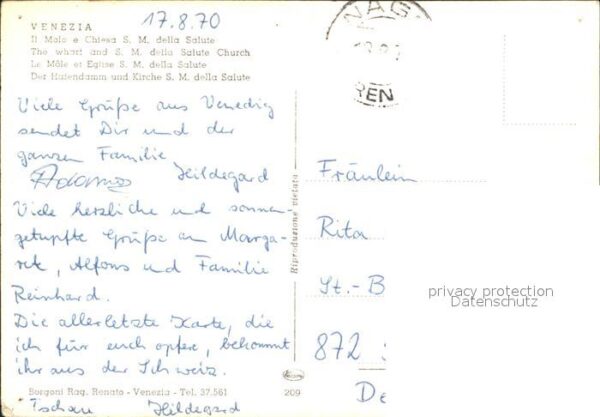 17.8.70
VENEZIA
Il Molo e Chiesa S. M. della Salute
The wharf and S. M. della Salute Church
Le Môle et Eglise S. M. della Salute
Der Hafendamm und Kirche S. M. della Salute
Viele Grüße aus Venedig
sendet Dir und der
ganzen Familie
Hildegard
Viele herzliche und sonnen-
getupfte Grüße an Marga-
ret, Alfons und Familie
Reinhard.
Die allerletzte Karte, die
ich für euch opfere, bekommt
ihr aus der Schweiz.
Borgoni Rag. Renato - Venezia - Tel. 37.561
209
Tschau Hildegard
Riproduzione vietata
NAG
REN
Fräulein
Rita
St.-B
privacy protection
Datenschutz
872
De